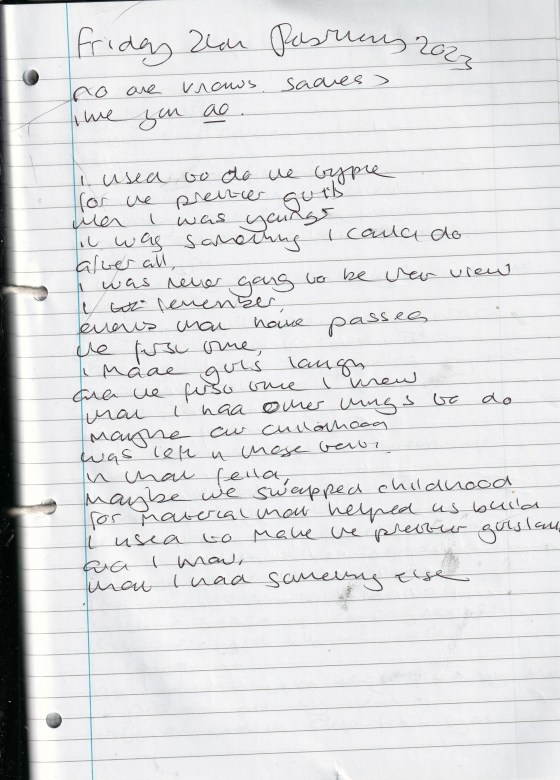 Friday 24th February 2023
no one knows
like you do.
I used to do the
for the prettier girls
when I was younger
it was something I could do
after all,
I was never going to be their
I remember,
that have passed
the first time,
I made girls laugh
and the first time I knew
that I had other things to do
maybe our childhood
was left in those
in that field,
maybe we swapped childhood
for material that helped us build
I used to make the prettier girls laugh
and I knew,
that I had something else